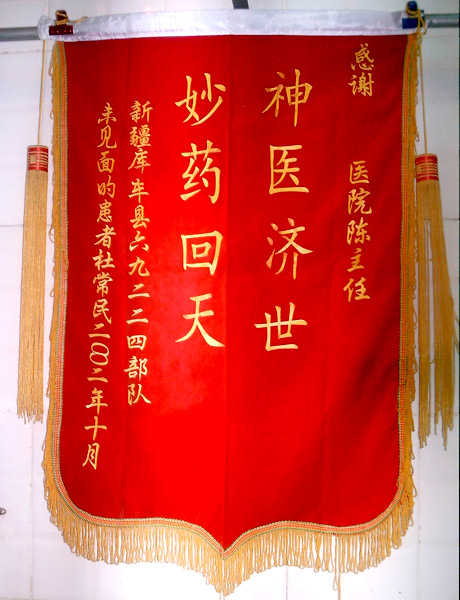 感谢 医院陈主任
神医济世
妙药回天
新疆库车县六九二二四部队
未见面的患者杜常民二〇〇二年十月